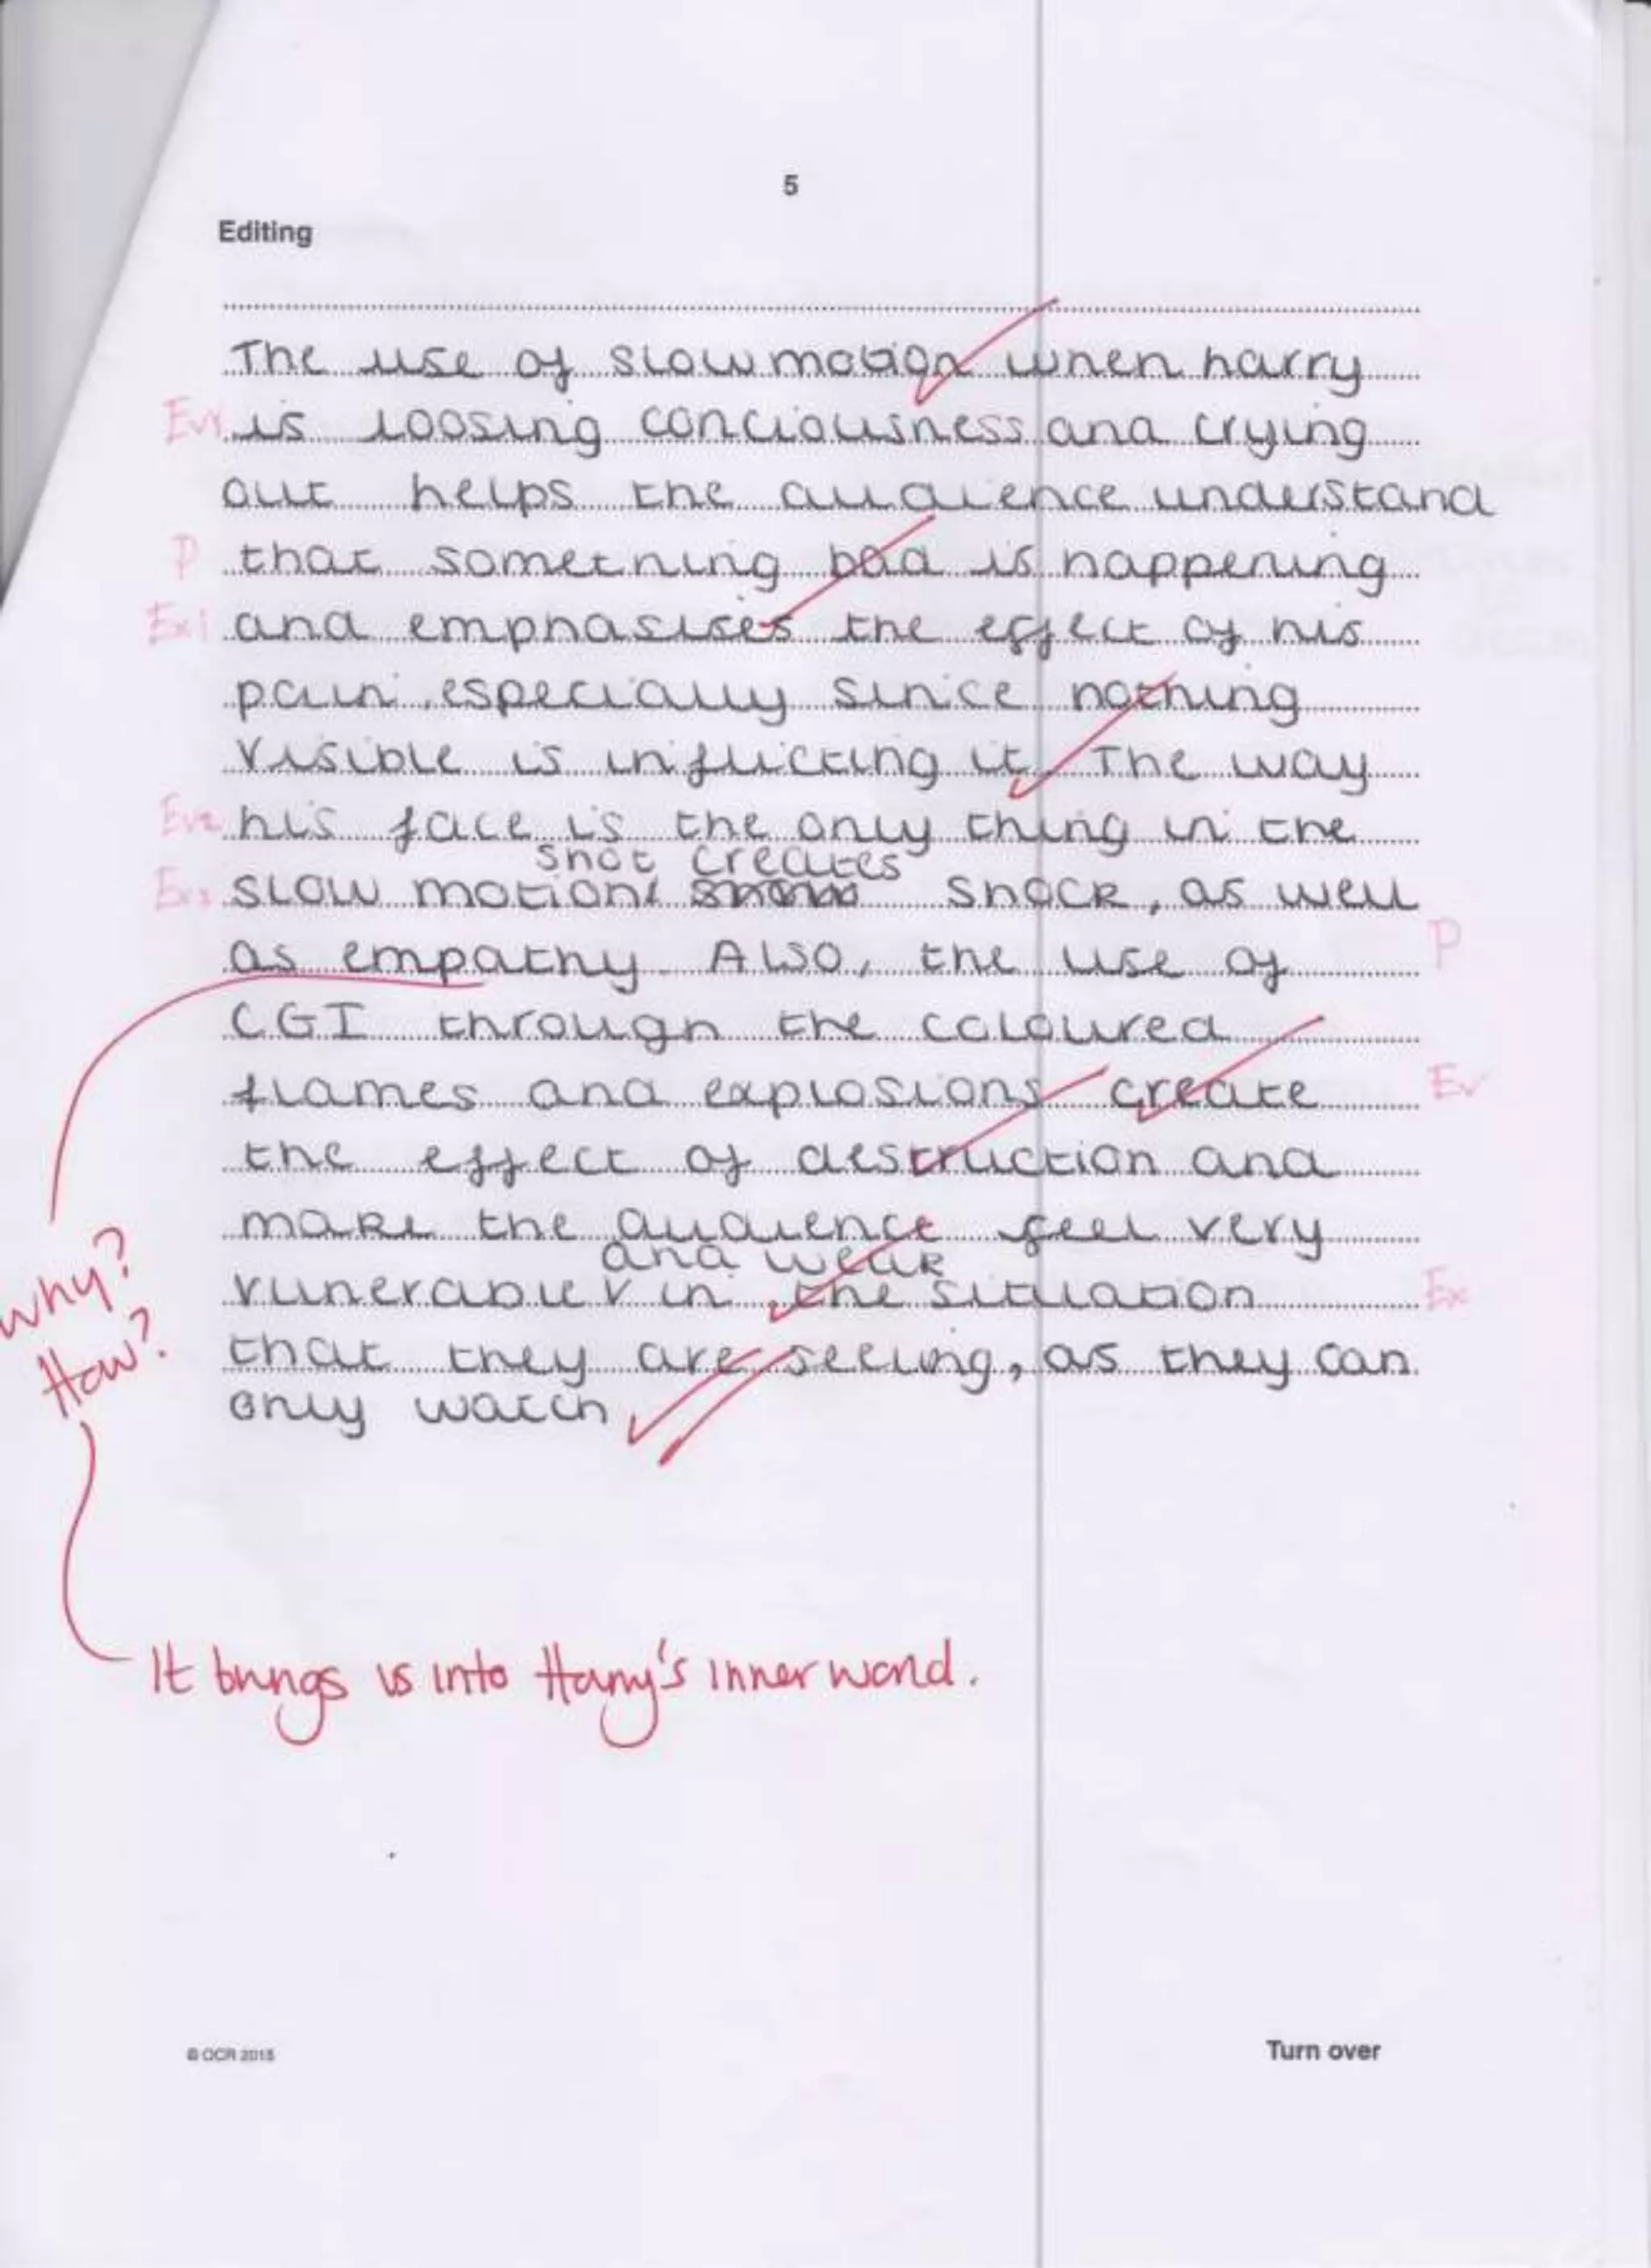 5
Editing
The use of slow motion when harry
Ev1 is loosing conciousness and crying
out helps the audience understand
P that something bad is happening
Ex1 and emphasises the effect of his
pain, especially since nothing
visible is inflicting it. The way
Ev2 his face is the only thing in the
shot creates
slow motion shock, as well
as empathy. Also, the use of P
CGI through the coloured
flames and explosions create Ev
the effect of destruction and
make the audience feel very
and weak
vunerable in the situation Ex
that they are seeing, as they can
only watch
Why?
How?
It brings us into Harry's inner world.
© OCR 2015
Turn over